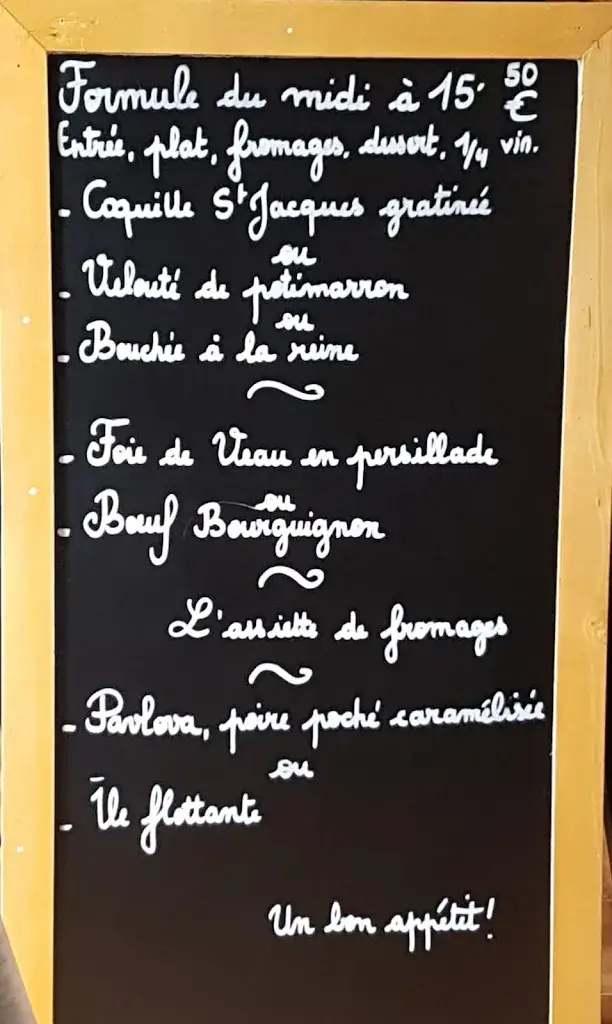 Formule du midi à 15.50 €
Entrée, plat, fromages, dessert, 1/4 vin.
- Coquille St Jacques gratinée
ou
- Velouté de potimarron
ou
- Bouchée à la reine
~
- Foie de Veau en persillade
ou
- Bœuf Bourguignon
~
L'assiette de fromages
~
- Pavlova, poire poché caramélisée
ou
- Île flottante
Un bon appétit!